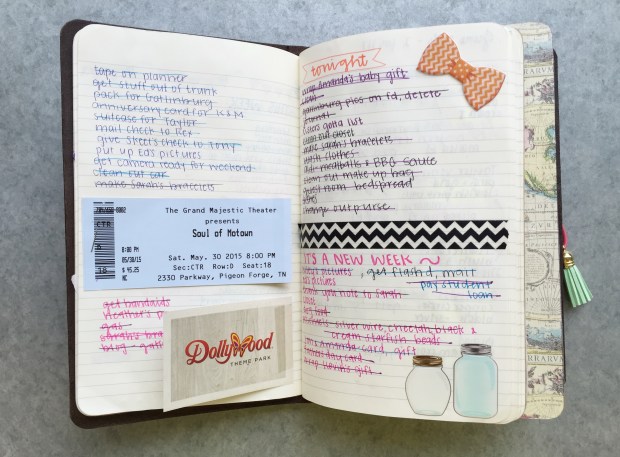 tape on planner
get stuff out of trunk
pack for Gatlinburg
anniversary card for K&M
suitcase for Taylor
mail check to Rex
give Skeet's check to Tony
put up Ed's pictures
get camera ready for weekend
clean out car
make Sarah's bracelets
CTR
8:00 PM
05/30/15
$ 45.25
The Grand Majestic Theater
presents
Soul of Motown
Sat. May. 30 2015 8:00 PM
Sec:CTR Row:O Seat:18
2330 Parkway, Pigeon Forge, TN
get bandaids
Heather's
gas
Sarah's
blog
Dollywood
THEME PARK
tonight
wrap Amanda's baby gift
Gatlinburg pics on fd, delete
gotta list
clean out closet
make Sarah's bracelets
wash clothes
meatballs & BBQ sauce
clean out make up bag
guest room bedspread
change out purse
IT'S A NEW WEEK ~
pictures, get flash d, mail
Ed's pictures pay student
note to Sarah loan
silver wire, cheetah, black &
cream starfish beads
Amanda card, gift
day card
wrap Sarah's gift